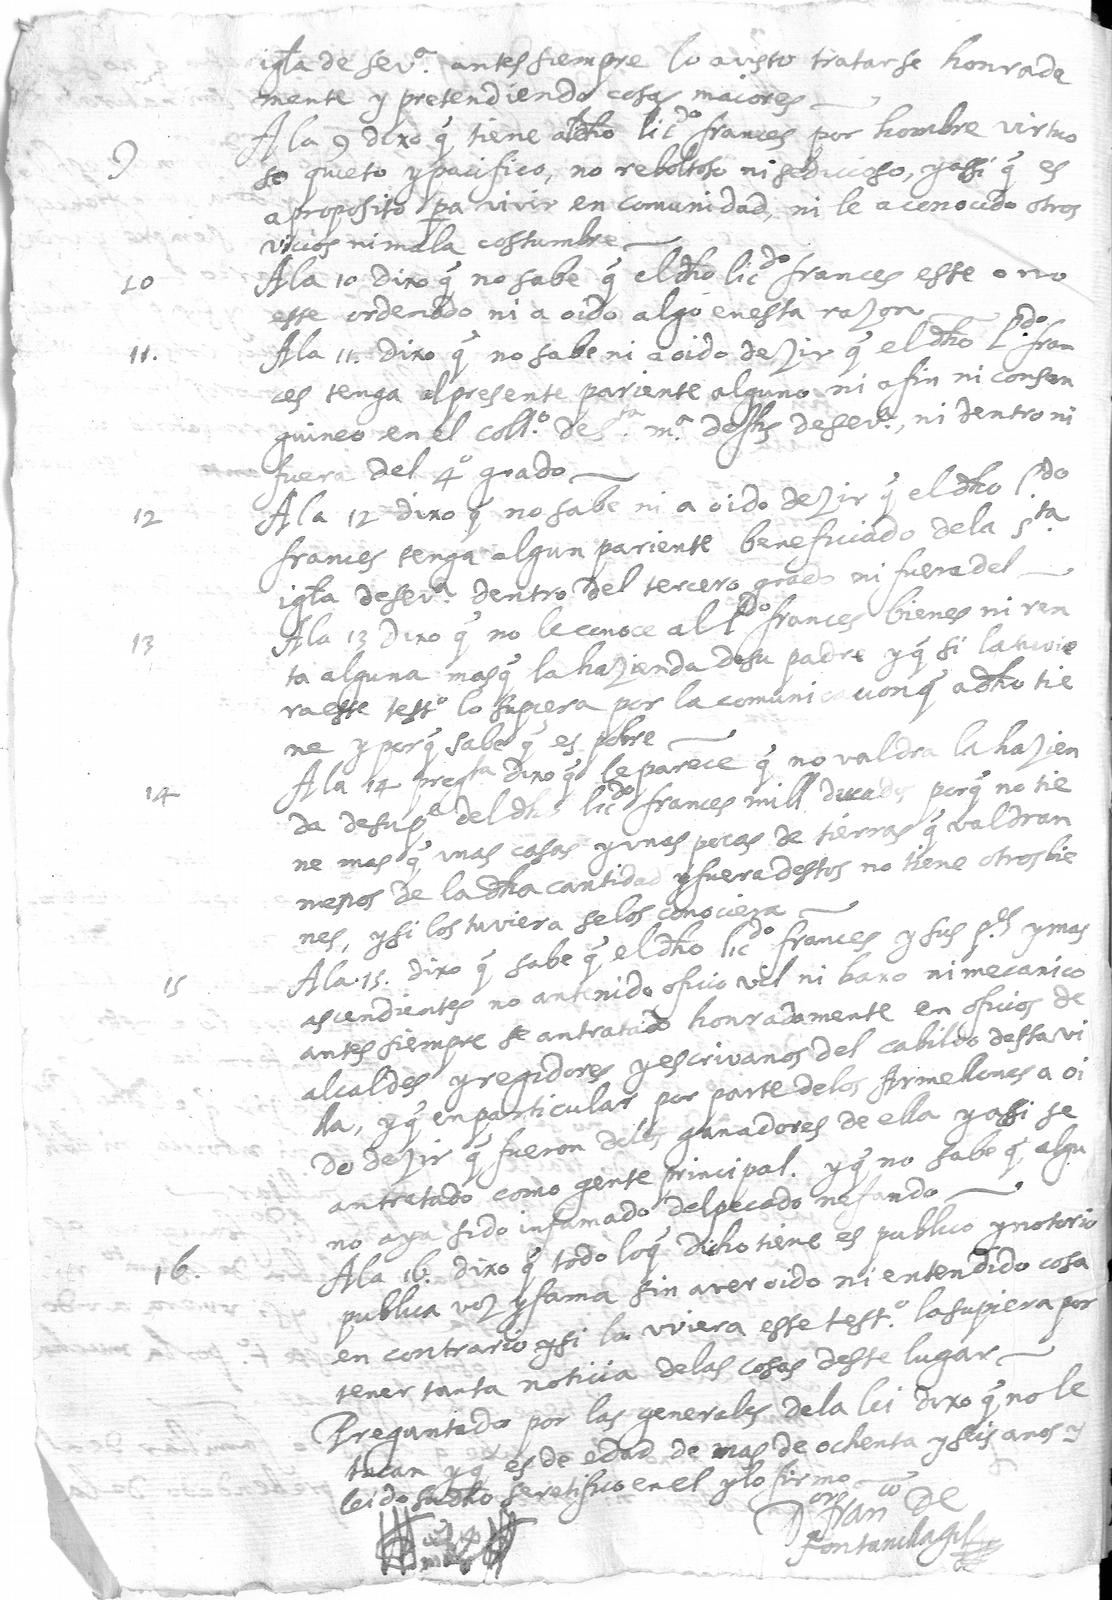 iglª de sevª. antes siempre lo a visto tratarse honrada
mente y pretendiendo cosas maiores
9 A la 9 dixo q̃ tiene al dho licdo frances por hombre virtuo
so quieto y pacifico, no reboltoso ni sedicioso, y assi q̃ es
a proposito pa vivir en comunidad, ni le a conocido otros
vicios ni mala costumbre
10 A la 10 dixo q̃ no sabe q̃ el dho licdo frances este o no
este ordenado ni a oido algo en esta razon
11. A la 11. dixo q̃ no sabe ni a oido dezir q̃ el dho Ldo fran
ces tenga al presente pariente alguno ni afin ni consan
guineo en el collº. de sta. mª. de Jhs de sevª., ni dentro ni
fuera del 4º grado
12 A la 12 dixo q̃ no sabe ni a oido dezir q̃ el dho Ldo
frances tenga algun pariente beneficiado de la sta.
iglª de sevª. dentro del tercero grado ni fuera del
13 A la 13 dixo q̃ no le conoce al Ldo frances bienes ni ren
ta alguna mas q̃ la hazienda de su padre y q̃ si la tuvie
ra este testº lo supiera por la comunicacion q̃ a dho tie
ne y porq̃ sabe q̃ es pobre
14 A la 14 pregta dixo q̃ le parece q̃ no valdra la hazien
da de su pe del dho licdo frances mill ducados porq̃ no tie
ne mas q̃ unas casas y unas pocas de tierras q̃ valdran
menos de la dha cantidad y fuera destos no tiene otros bie
nes, y si los tuviera se los conociera
15 A la 15. dixo q̃ sabe q̃ el dho licdo frances y sus pes y mas
ascendientes no an tenido oficio vil ni baxo ni mecanico
antes siempre se an tratado honradamente en oficios de
alcaldes y regidores y escrivanos del cabildo desta vi
lla, y q̃ en particular por parte de los Armellones a oi
do dezir q̃ fueron de los ganadores de ella y assi se
an tratado como gente principal. y q̃ no sabe q̃ algu
no aya sido infamado del pecado nefando
16. A la 16. dixo q̃ todo lo q̃ dicho tiene es publico y notorio
publica voz y fama sin aver oido ni entendido cosa
en contrario y si la uviera este testº. la supiera por
tener tanta noticia de las cosas deste lugar
Preguntado por las generales de la lei dixo q̃ no le
tocan y q̃ es de edad de mas de ochenta y seis anos y
leido su dho se retifico en el y lo firmo
franco De
Fontanilla